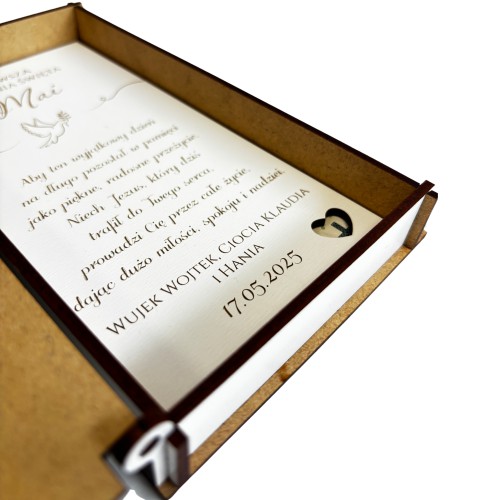 WSZA
IA ŚWIĘTA
Mai
Aby ten wyjątkowy dzień
na długo pozostał w pamięci
jako piękne, radosne przeżycie.
Niech Jezus, który dziś
trafił do Twego serca,
prowadzi Cię przez całe życie,
dając dużo miłości, spokoju i nadziei.
WUJEK WOJTEK, CIOCIA KLAUDIA
I HANIA
17.05.2025